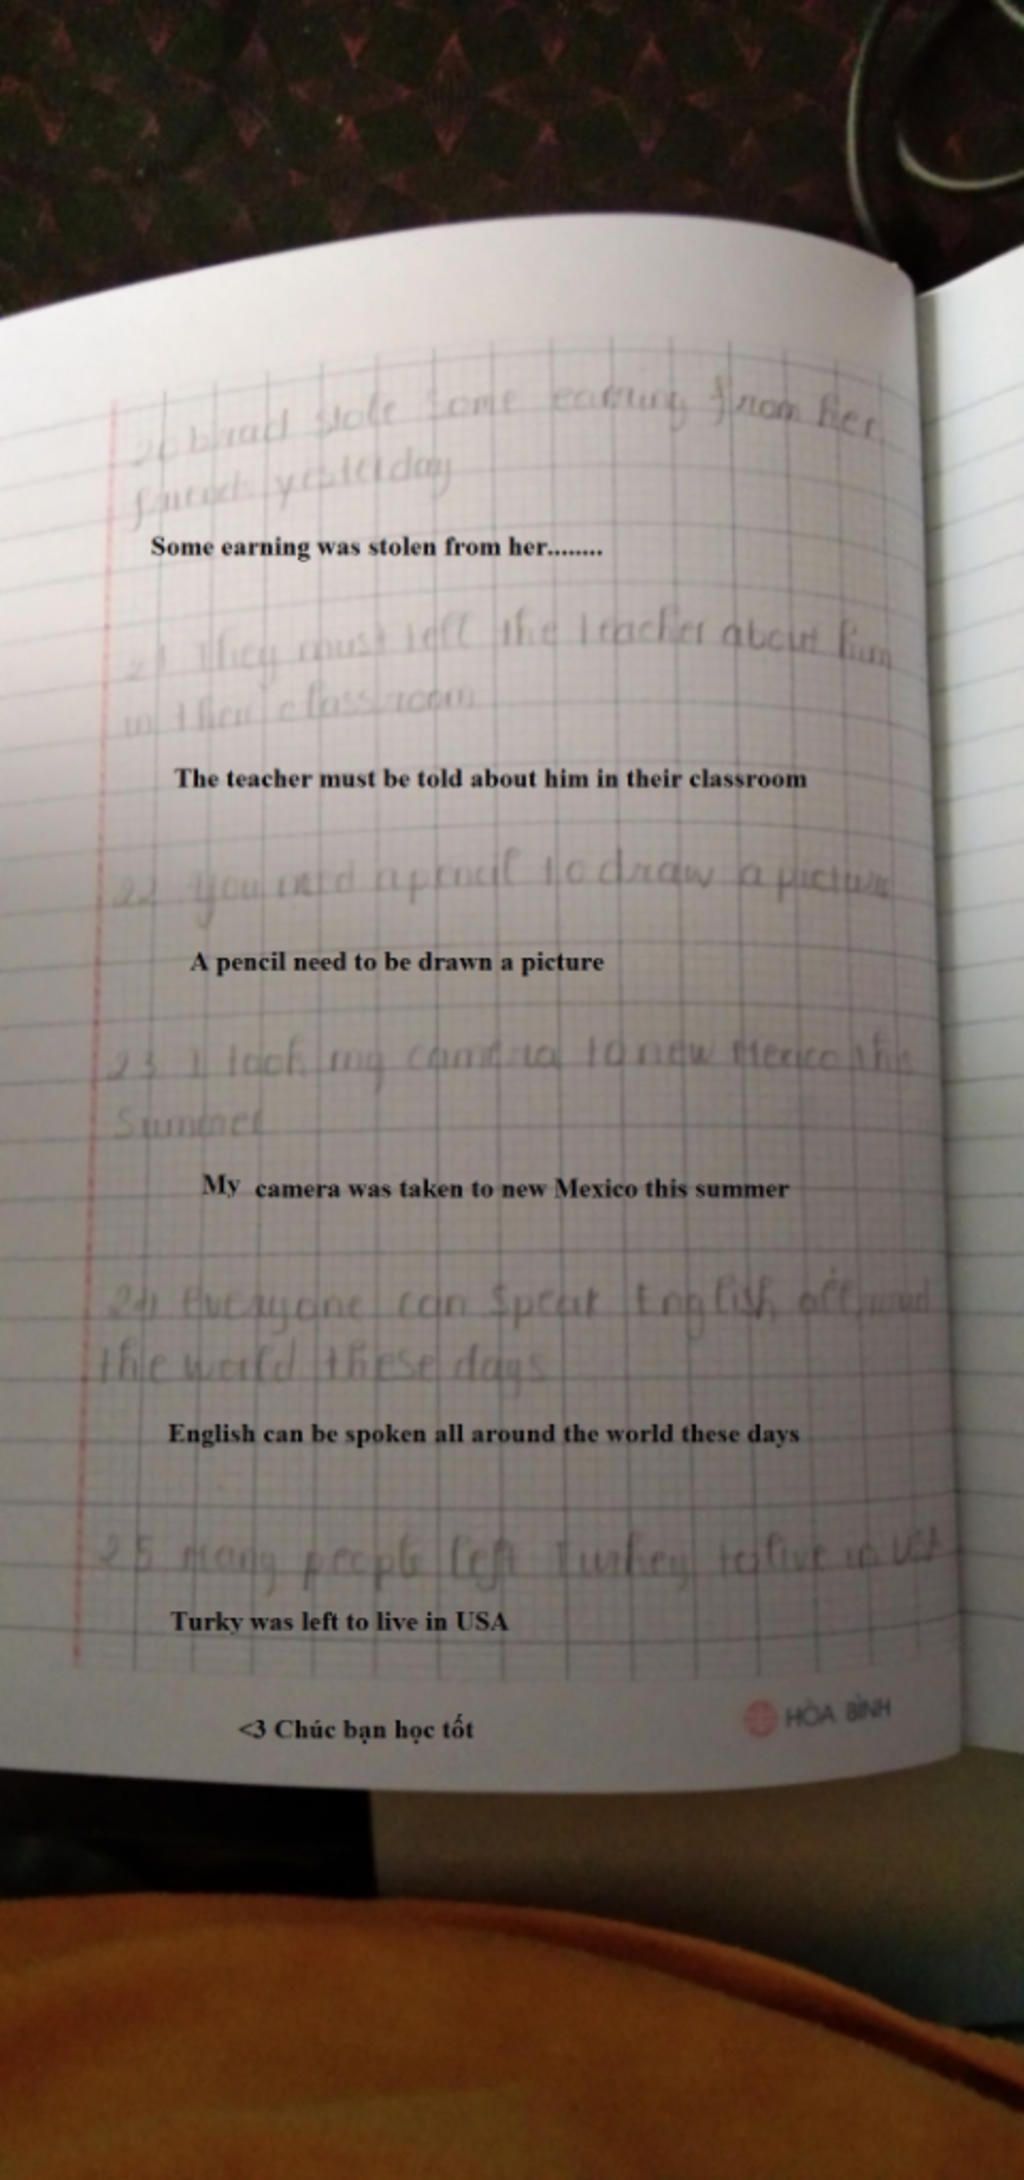 20 brad stole some earring from her
friend yesterday
Some earning was stolen from her........
21 They must tell the teacher about him
in their classroom
The teacher must be told about him in their classroom
22 you need a pencil to draw a picture
A pencil need to be drawn a picture
23 I took my camera to new Mexico this
Summer
My camera was taken to new Mexico this summer
24 everyone can speak English all around
the world these days
English can be spoken all around the world these days
25 Many people left Turkey to live in USA
Turky was left to live in USA
<3 Chúc bạn học tốt
HÒA BÌNH